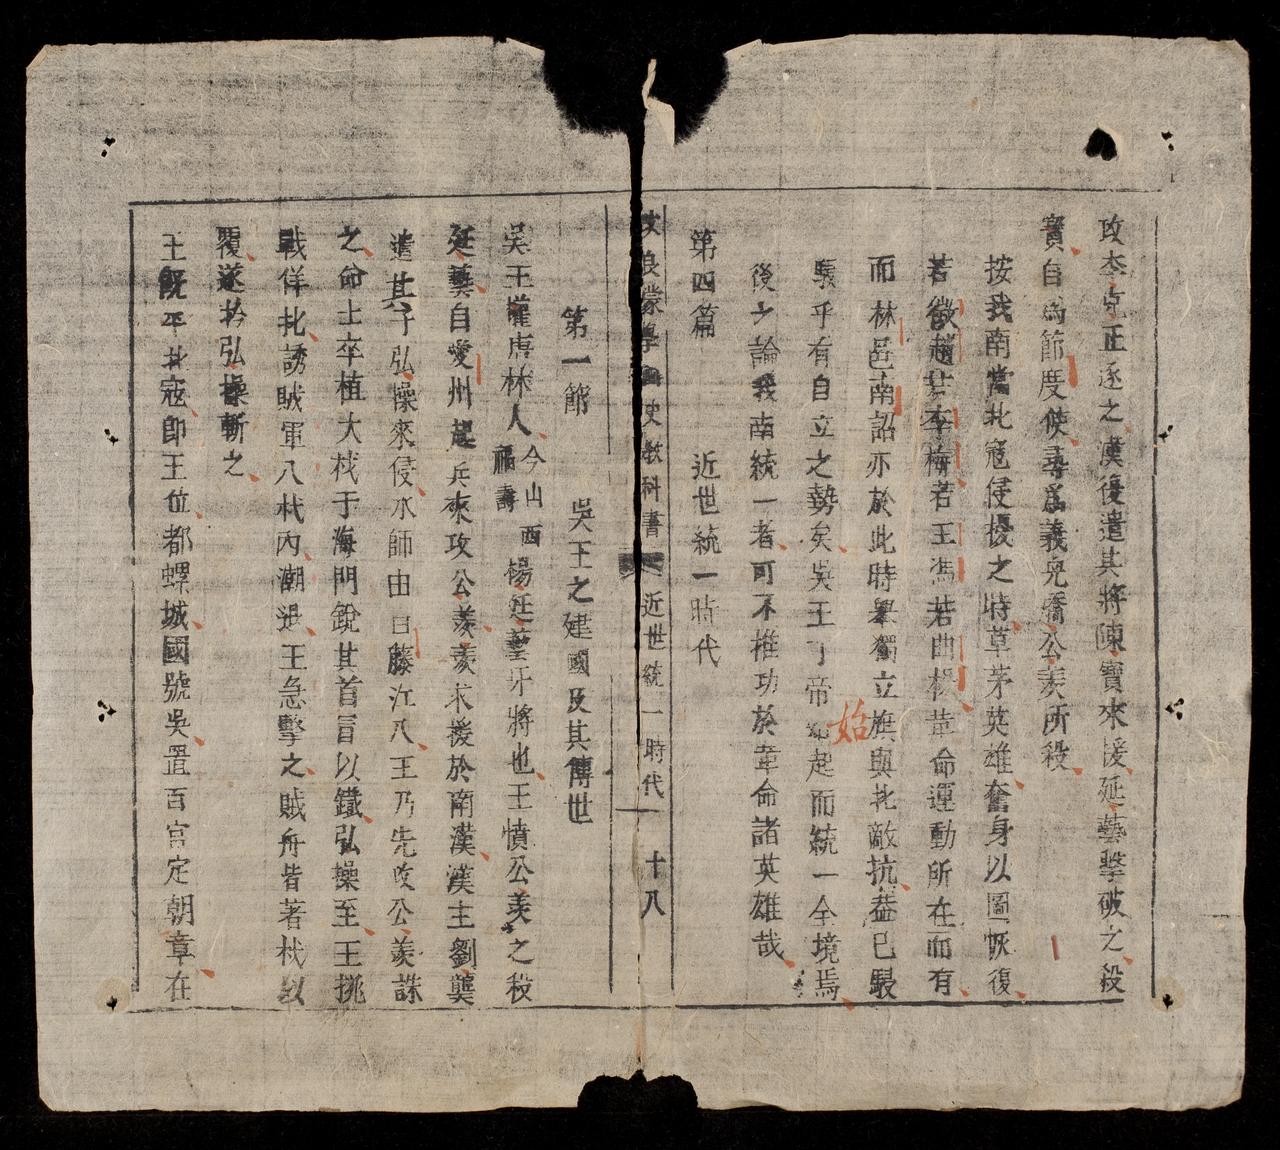 攻李克正逐之漢復遣其將陳寶來援延藝擊破之殺
寶自爲節度使尋爲義兒矯公羡所殺
按我南當北寇侵擾之時草茅英雄奮身以圖恢復
若徵趙若李梅若王馮若曲楊革命運動所在而有
而林邑南詔亦於此時舉獨立旗與北敵抗蓋已駸
駸乎有自立之勢矣吳王丁帝始起而統一全境焉
後之論我南統一者可不推功於革命諸英雄哉
第四篇 近世統一時代
改良蒙學國史教科書 近世統一時代 十八
第一節 吳王之建國及其傳世
吳王權唐林人今山西福壽楊延藝牙將也王憤公羡之殺
延藝自愛州起兵來攻公羡羡求援於南漢漢主劉龑
遣其子弘操來侵水師由白藤江入王乃先攻公羡誅
之命士卒植大杙于海門銳其首冒以鐵弘操至王挑
戰佯北誘賊軍入杙內潮退王急擊之賊舟皆著杙以
覆遂禽弘操斬之
王旣平北寇卽王位都螺城國號吳置百官定朝章在